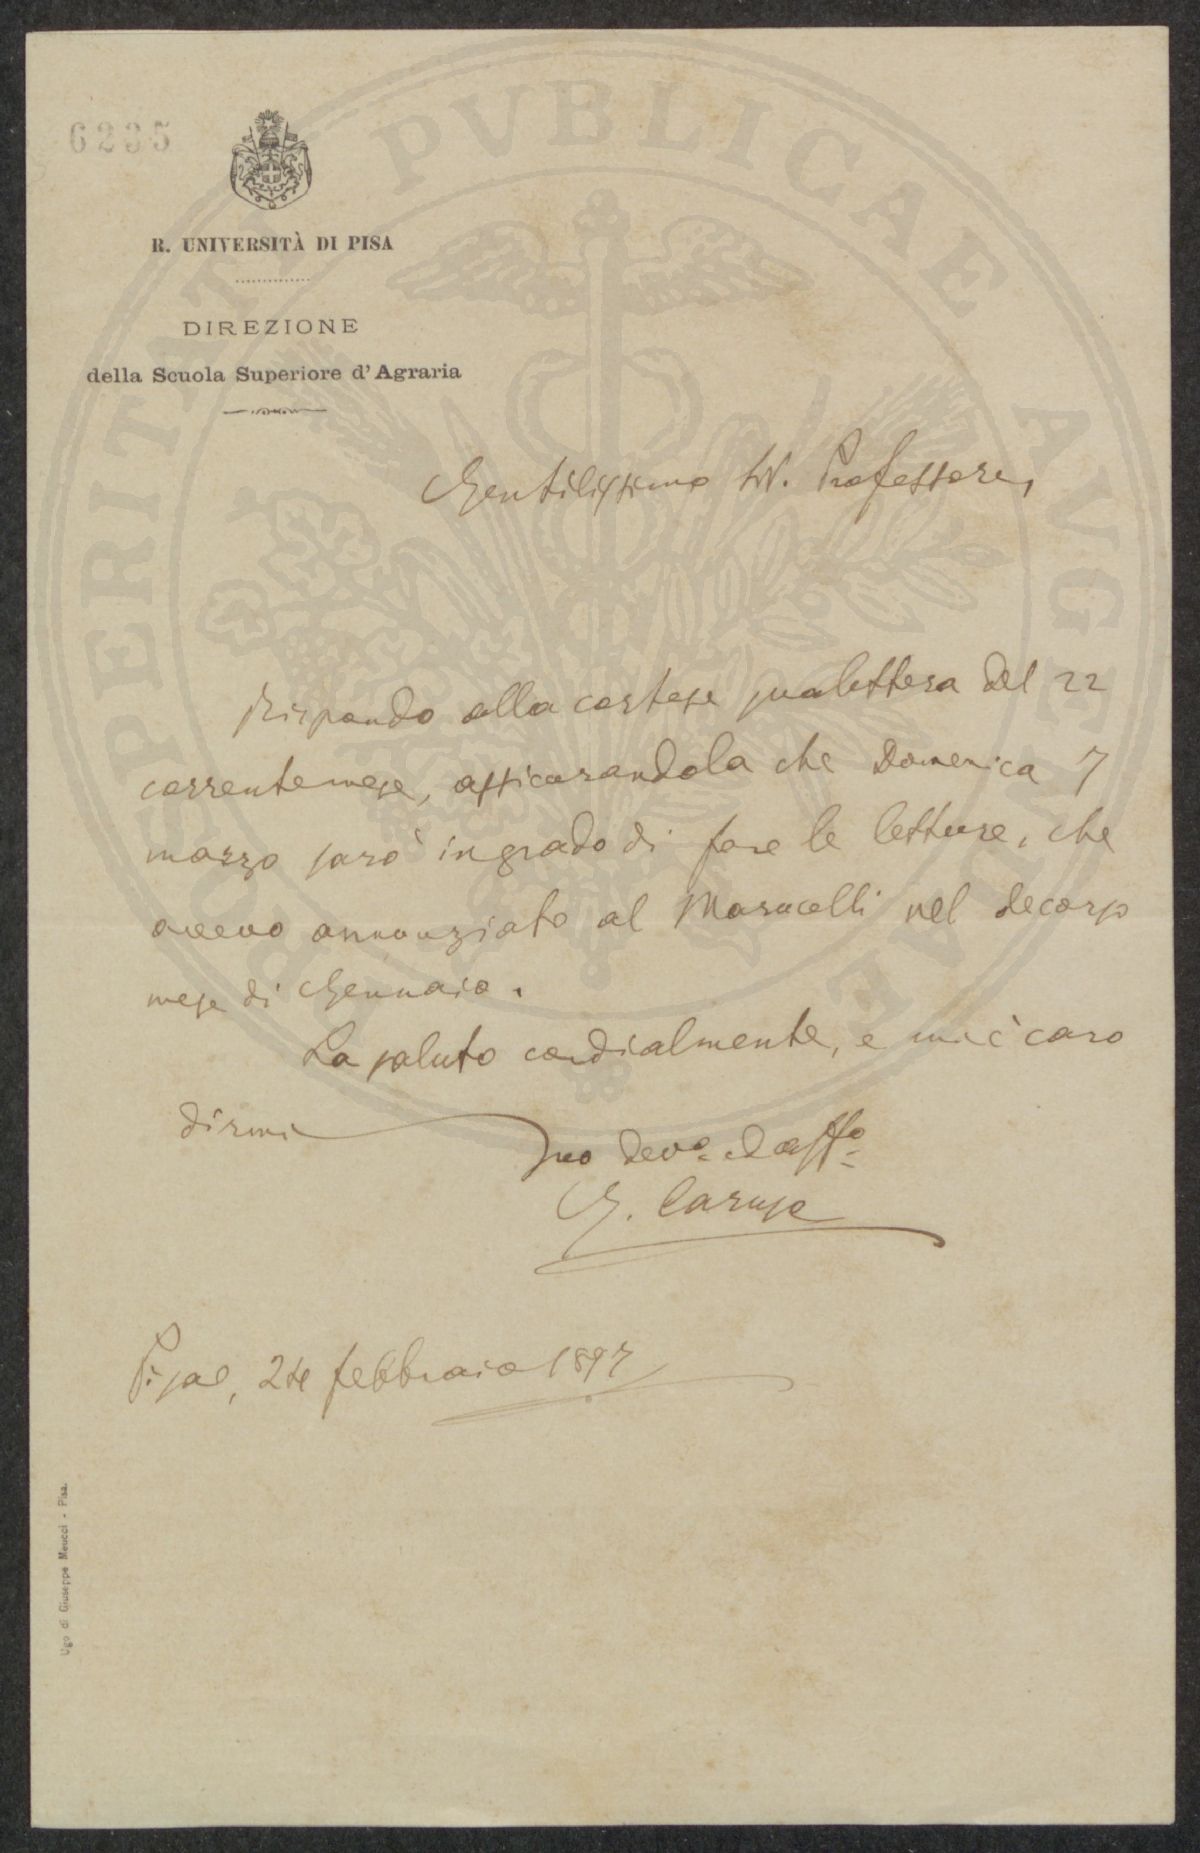 6235
R. UNIVERSITÀ DI PISA
DIREZIONE
della Scuola Superiore d'Agraria
Gentilissimo Sr. Professore,
Rispondo alla cortese sua lettera del 22
corrente mese, assicurandola che Domenica 7
marzo sarò in grado di fare le letture, che
avevo annunziato al Marucelli nel decorso
mese di Gennaio.
La saluto cordialmente, e mi è caro
dirmi
Suo devo. ed affo.
G. Caruso
Pisa, 24 febbraio 1897
Ugo di Giuseppe Meucci - Pisa.
PROSPERITATI PVBLICAE AVGENDAE